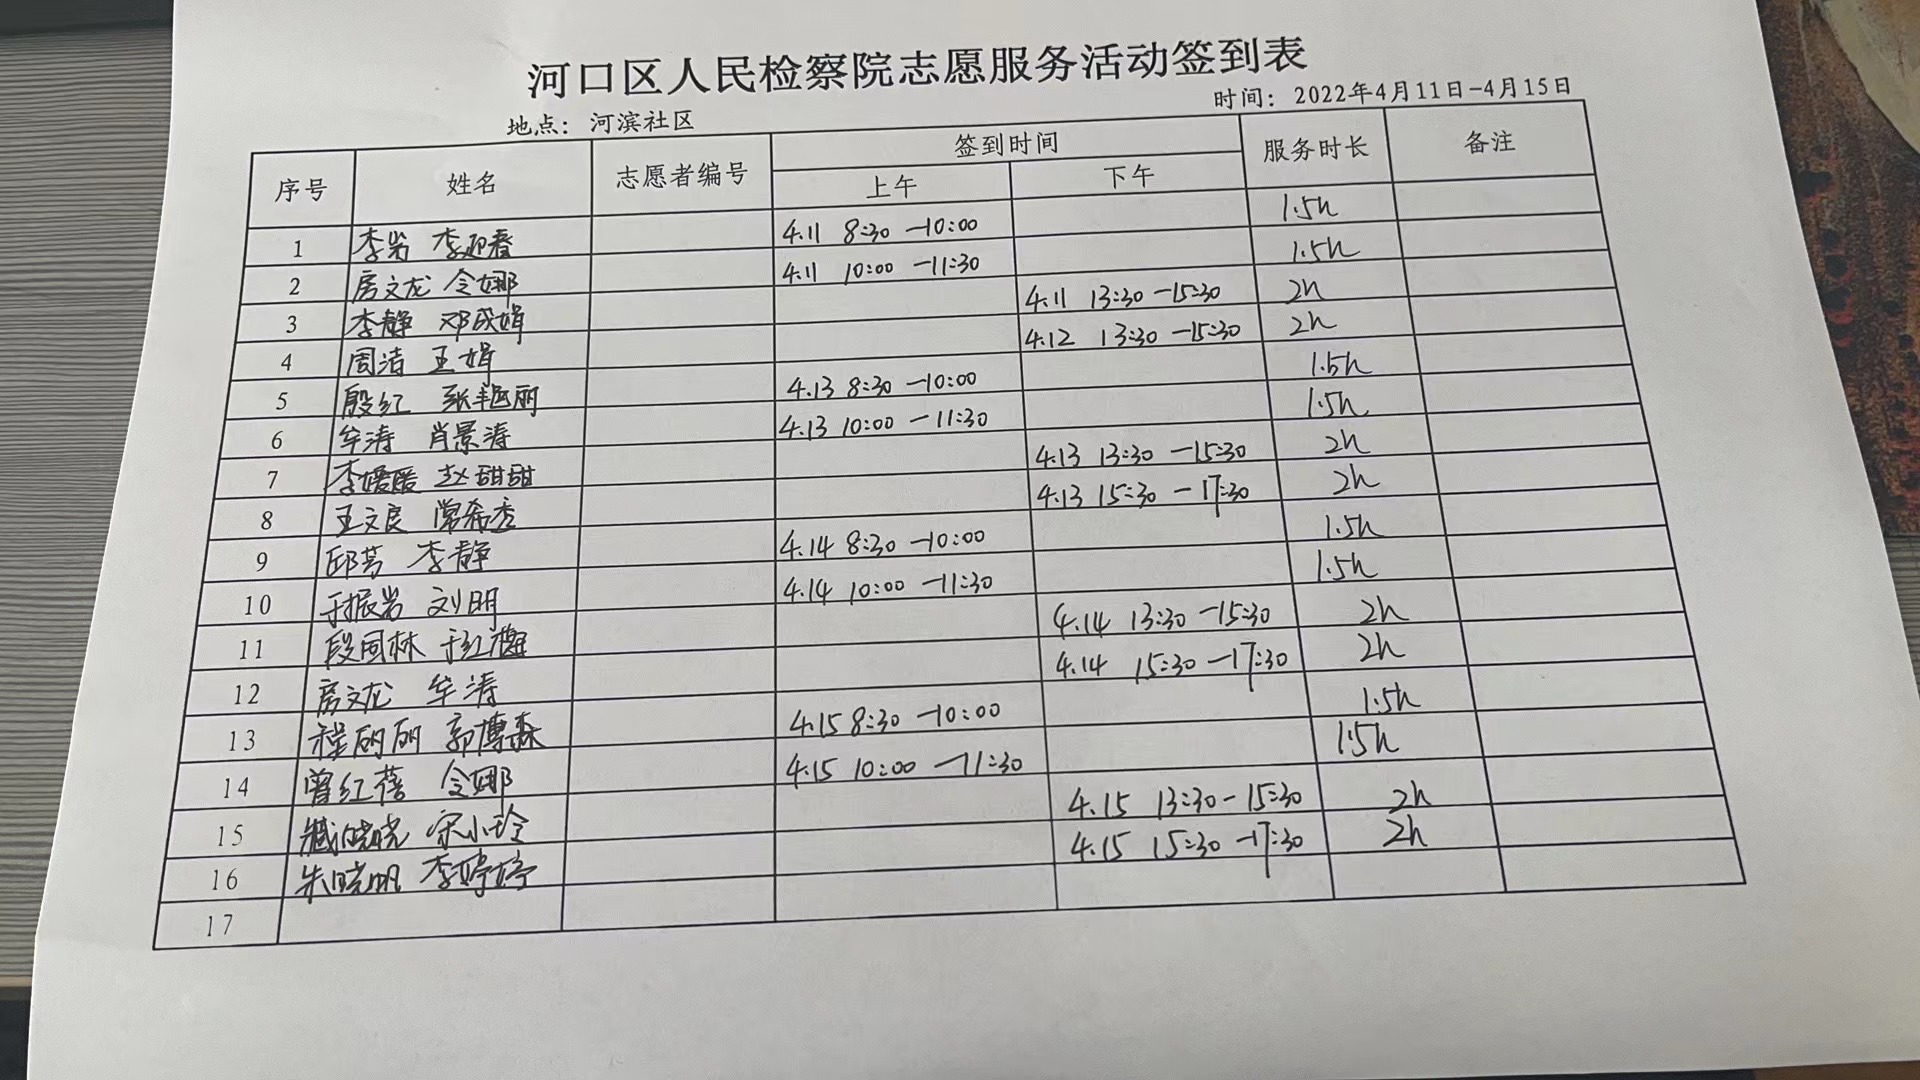 河口区人民检察院志愿服务活动签到表
时间：2022年4月11日-4月15日
地点：河滨社区
序号 姓名 志愿者编号 签到时间 服务时长 备注
上午 下午
1 李岩 李迎春 4.11 8:30 —10:00 1.5h
2 房文龙 令娜 4.11 10:00 —11:30 1.5h
3 李静 邓民娟 4.11 13:30 —15:30 2h
4 周洁 王娟 4.12 13:30 —15:30 2h
5 殷红 张艳丽 4.13 8:30 —10:00 1.5h
6 牟涛 肖景涛 4.13 10:00 —11:30 1.5h
7 李媛媛 赵甜甜 4.13 13:30 —15:30 2h
8 王文良 常希秀 4.13 15:30 —17:30 2h
9 邱芳 李静 4.14 8:30 —10:00 1.5h
10 于振岩 刘明 4.14 10:00 —11:30 1.5h
11 段国林 于红 4.14 13:30 —15:30 2h
12 房文龙 牟涛 4.14 15:30 —17:30 2h
13 程丽丽 郭博森 4.15 8:30 —10:00 1.5h
14 曾红蓓 令娜 4.15 10:00 —11:30 1.5h
15 臧晓晓 宋小玲 4.15 13:30 — 15:30 2h
16 朱晓帆 李婷婷 4.15 15:30 —17:30 2h
17